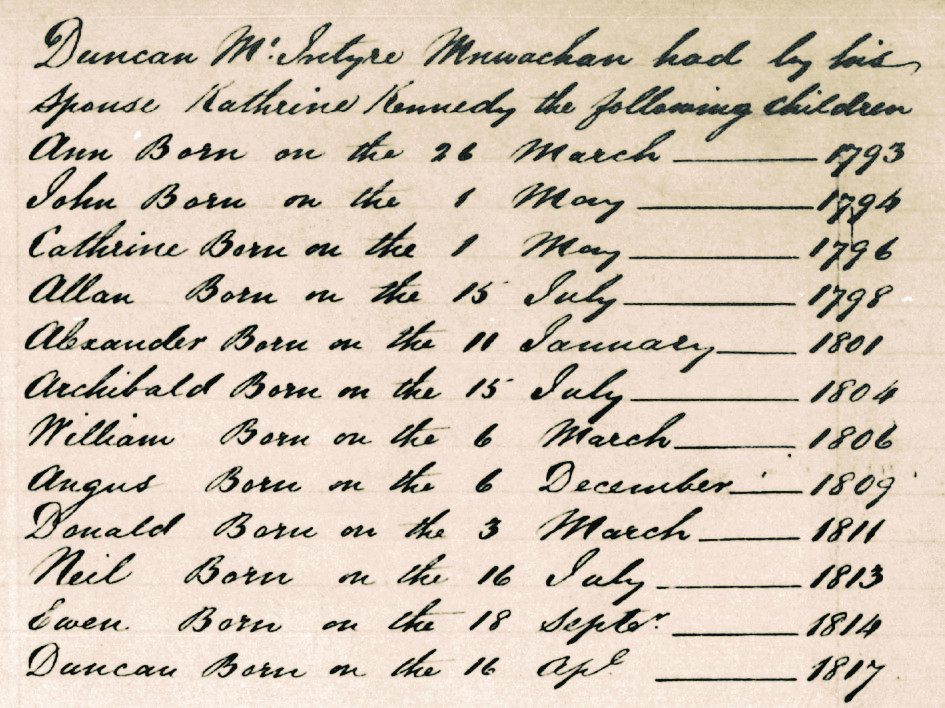 Duncan Mc Intyre Mnwachan had by his
spouse Kathrine Kennedy the following children
Ann Born on the 26 March 1793
John Born on the 1 May 1794
Cathrine Born on the 1 May 1796
Allan Born on the 15 July 1798
Alexander Born on the 11 January 1801
Archibald Born on the 15 July 1804
William Born on the 6 March 1806
Angus Born on the 6 December 1809
Donald Born on the 3 March 1811
Neil Born on the 16 July 1813
Ewen Born on the 18 Septr. 1814
Duncan Born on the 16 Apl. 1817